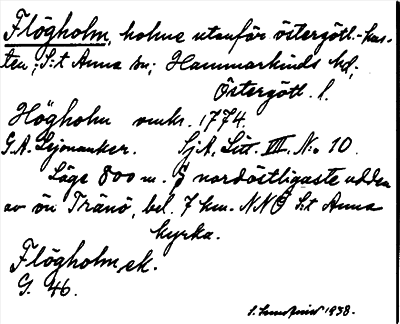 Flögholm, holme utanför östergötl.-kus-
ten; S:t Anna sn; Hammarkinds hd;
Östergötl. l.
Högholm omkr. 1774.
G.A. Lejonanker. SjA, Litt. III. N:o 10.
Läge 800 m. Ö nordöstligaste udden
av ön Tränö, bel. 7 km. NNÖ S:t Anna
kyrka.
Flögholm ek.
G. 46.
1938.